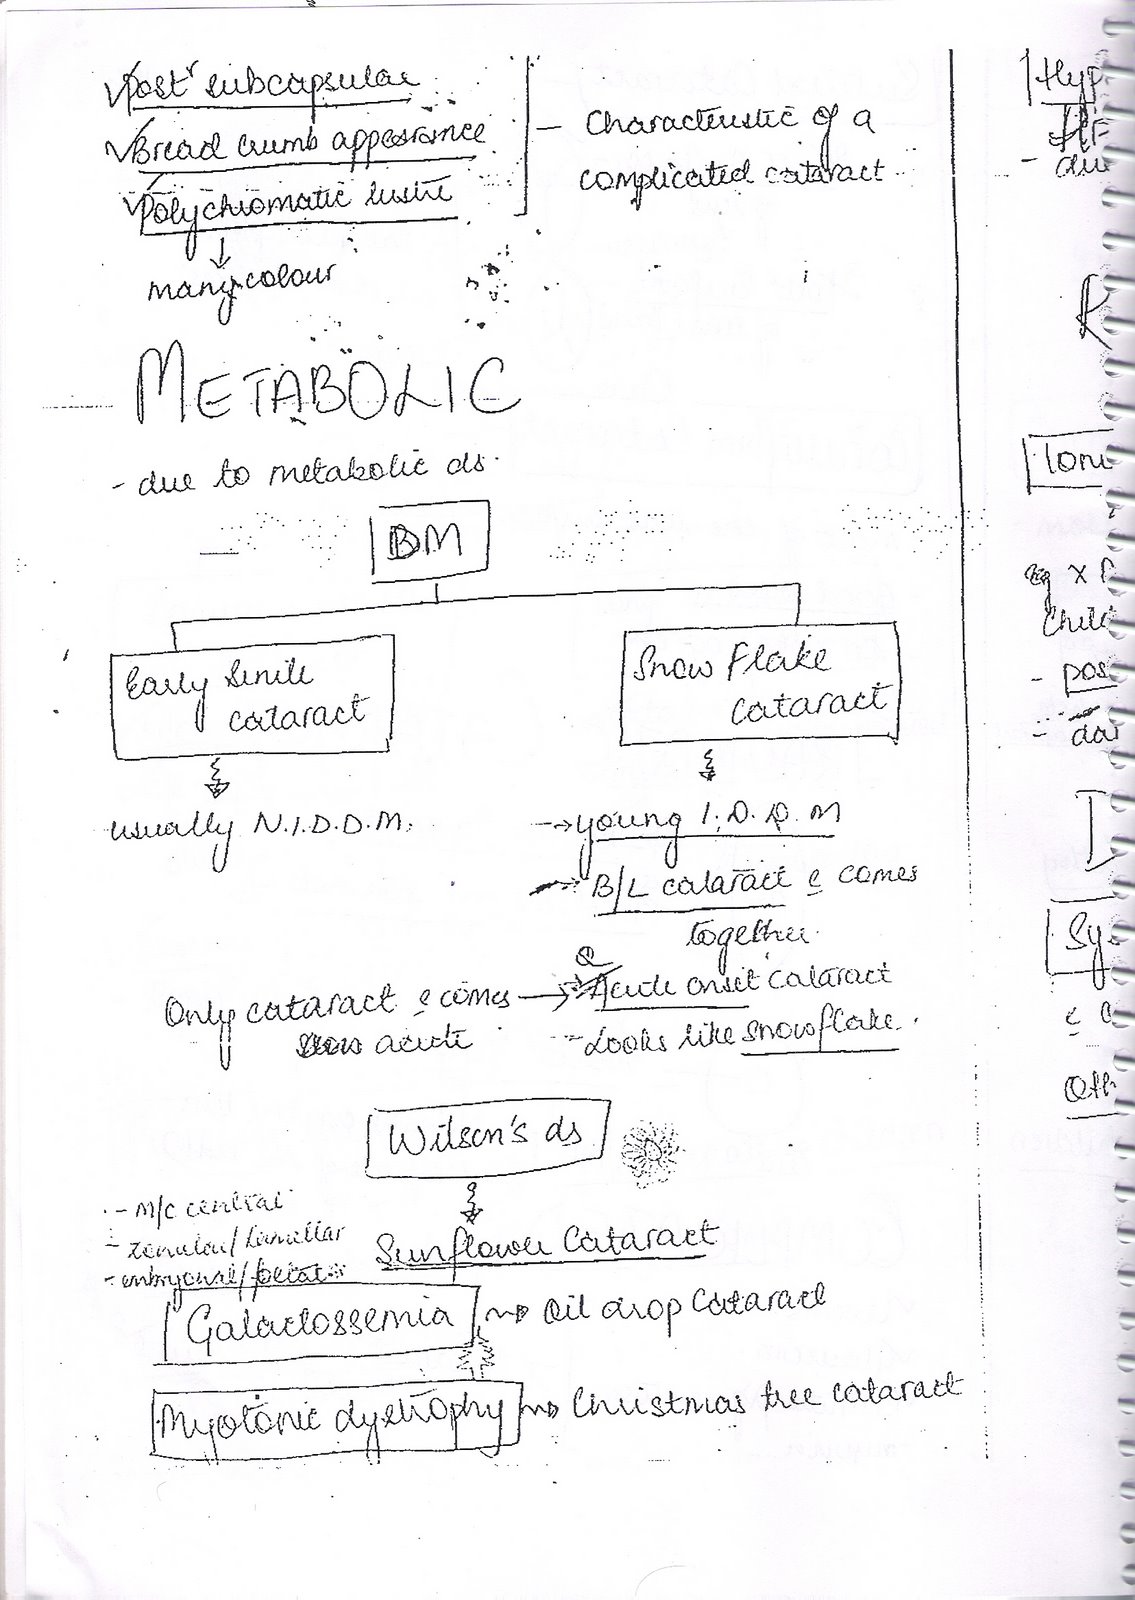 Postr subcapsular
Bread crumb appearance
Polychromatic lustre
Characteristic of a
complicated cataract
many colour
METABOLIC
- due to metabolic ds.
DM
Early Senile
cataract
Snow Flake
cataract
usually N.I.D.D.M.
→ young I.D.D.M
→ B/L cataract c̲ comes
together.
Q
Acute onset cataract
Only cataract c̲ comes →
acute
- Looks like snowflake.
Wilson's ds
- M/C central
- zonular/lamellar
- embryonal/foetal
Sunflower Cataract
Galactossemia → Oil drop Cataract
Myotonic dystrophy → Christmas tree cataract
Hyp
- due
Ioni
eg X
Child
- pos
- dar
Sy
c̲
Oth